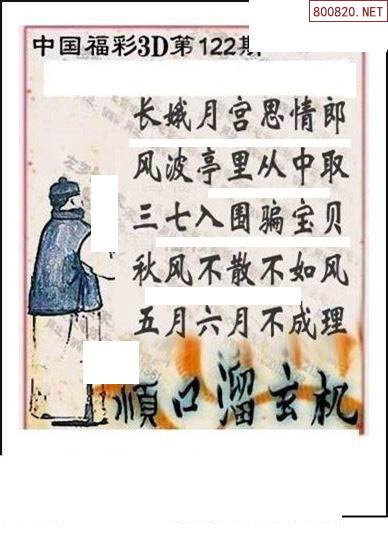 800820.NET
中国福彩3D第122期
长娥月宫思情郎
风波亭里从中取
三七入围骗宝贝
秋风不散不如风
五月六月不成理
顺口溜玄机